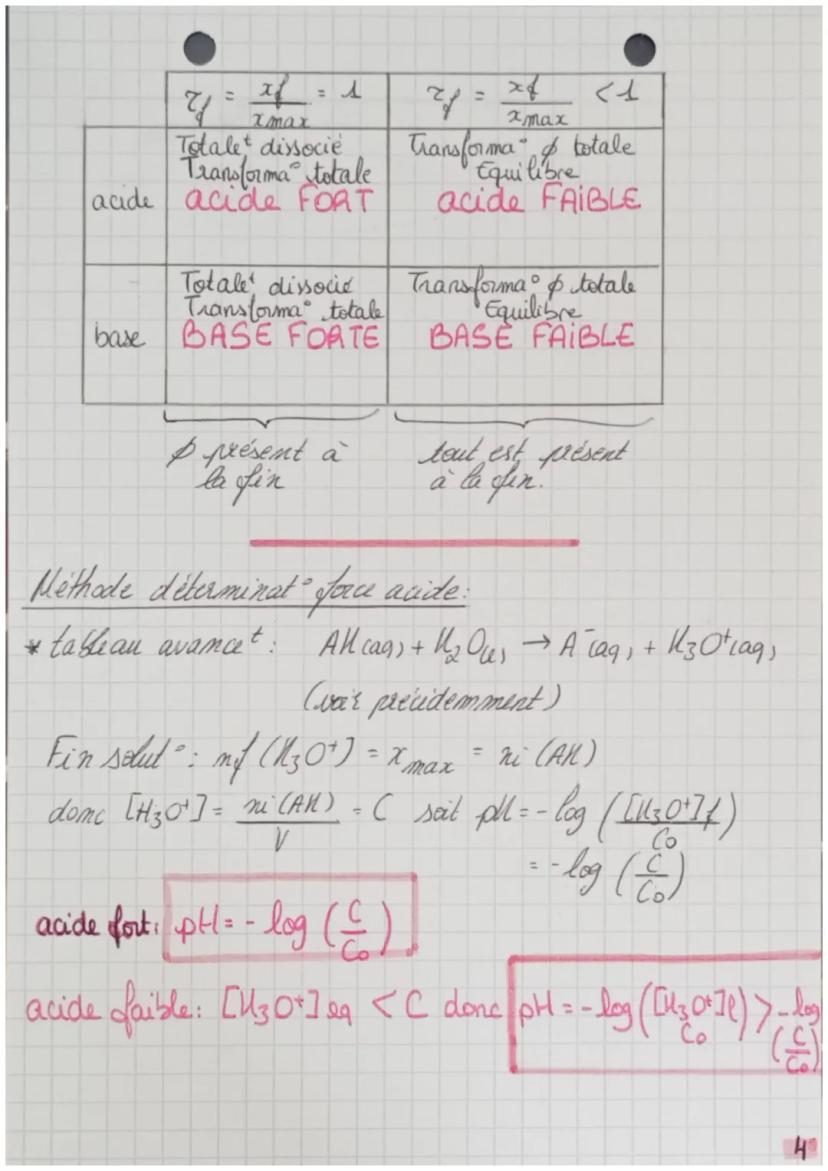 τf = xf / xmax = 1
τf = xf / xmax < 1
acide
Totaleᵗ dissocié
Transforma° totale
acide FORT
Transforma° ϕ totale
Equilibre
acide FAiBLE
base
Totaleᵗ dissocié
Transforma° totale
BASE FORTE
Transforma° ϕ totale
Equilibre
BASE FAiBLE
ϕ présent à
la fin
tout est présent
à la fin.
Méthode déterminat° force acide:
* tableau avanceᵗ : AH(aq) + H₂O(l) → A⁻(aq) + H₃O⁺(aq)
(voir précédemment)
Fin solut° : nf (H₃O⁺) = xmax = ni (AH)
donc [H₃O⁺] = ni (AH) / V = C soit pH = - log ([H₃O⁺]f / C₀)
= - log (C / C₀)
acide fort: pH = - log (C / C₀)
acide faible: [H₃O⁺]eq < C donc pH = - log ([H₃O⁺]f / C₀) > - log (C / C₀)
4